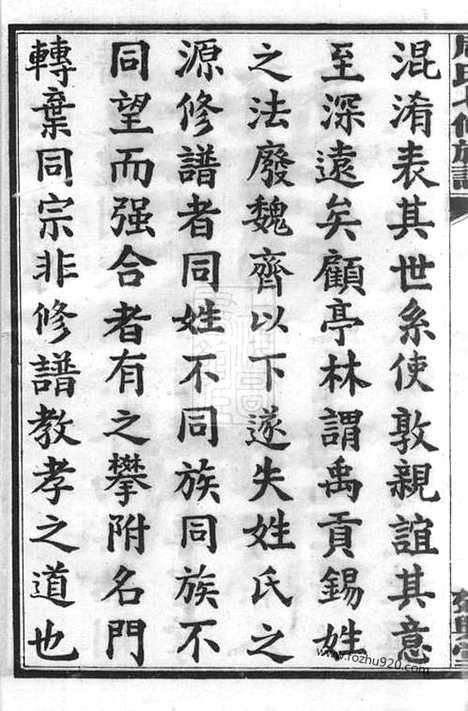 混淆表其世系使敦親誼其意
至深遠矣顧亭林謂禹貢錫姓
之法廢魏齊以下遂失姓氏之
源修譜者同姓不同族同族不
同望而强合者有之攀附名門
轉棄同宗非修譜教孝之道也
www.fozhu920.com